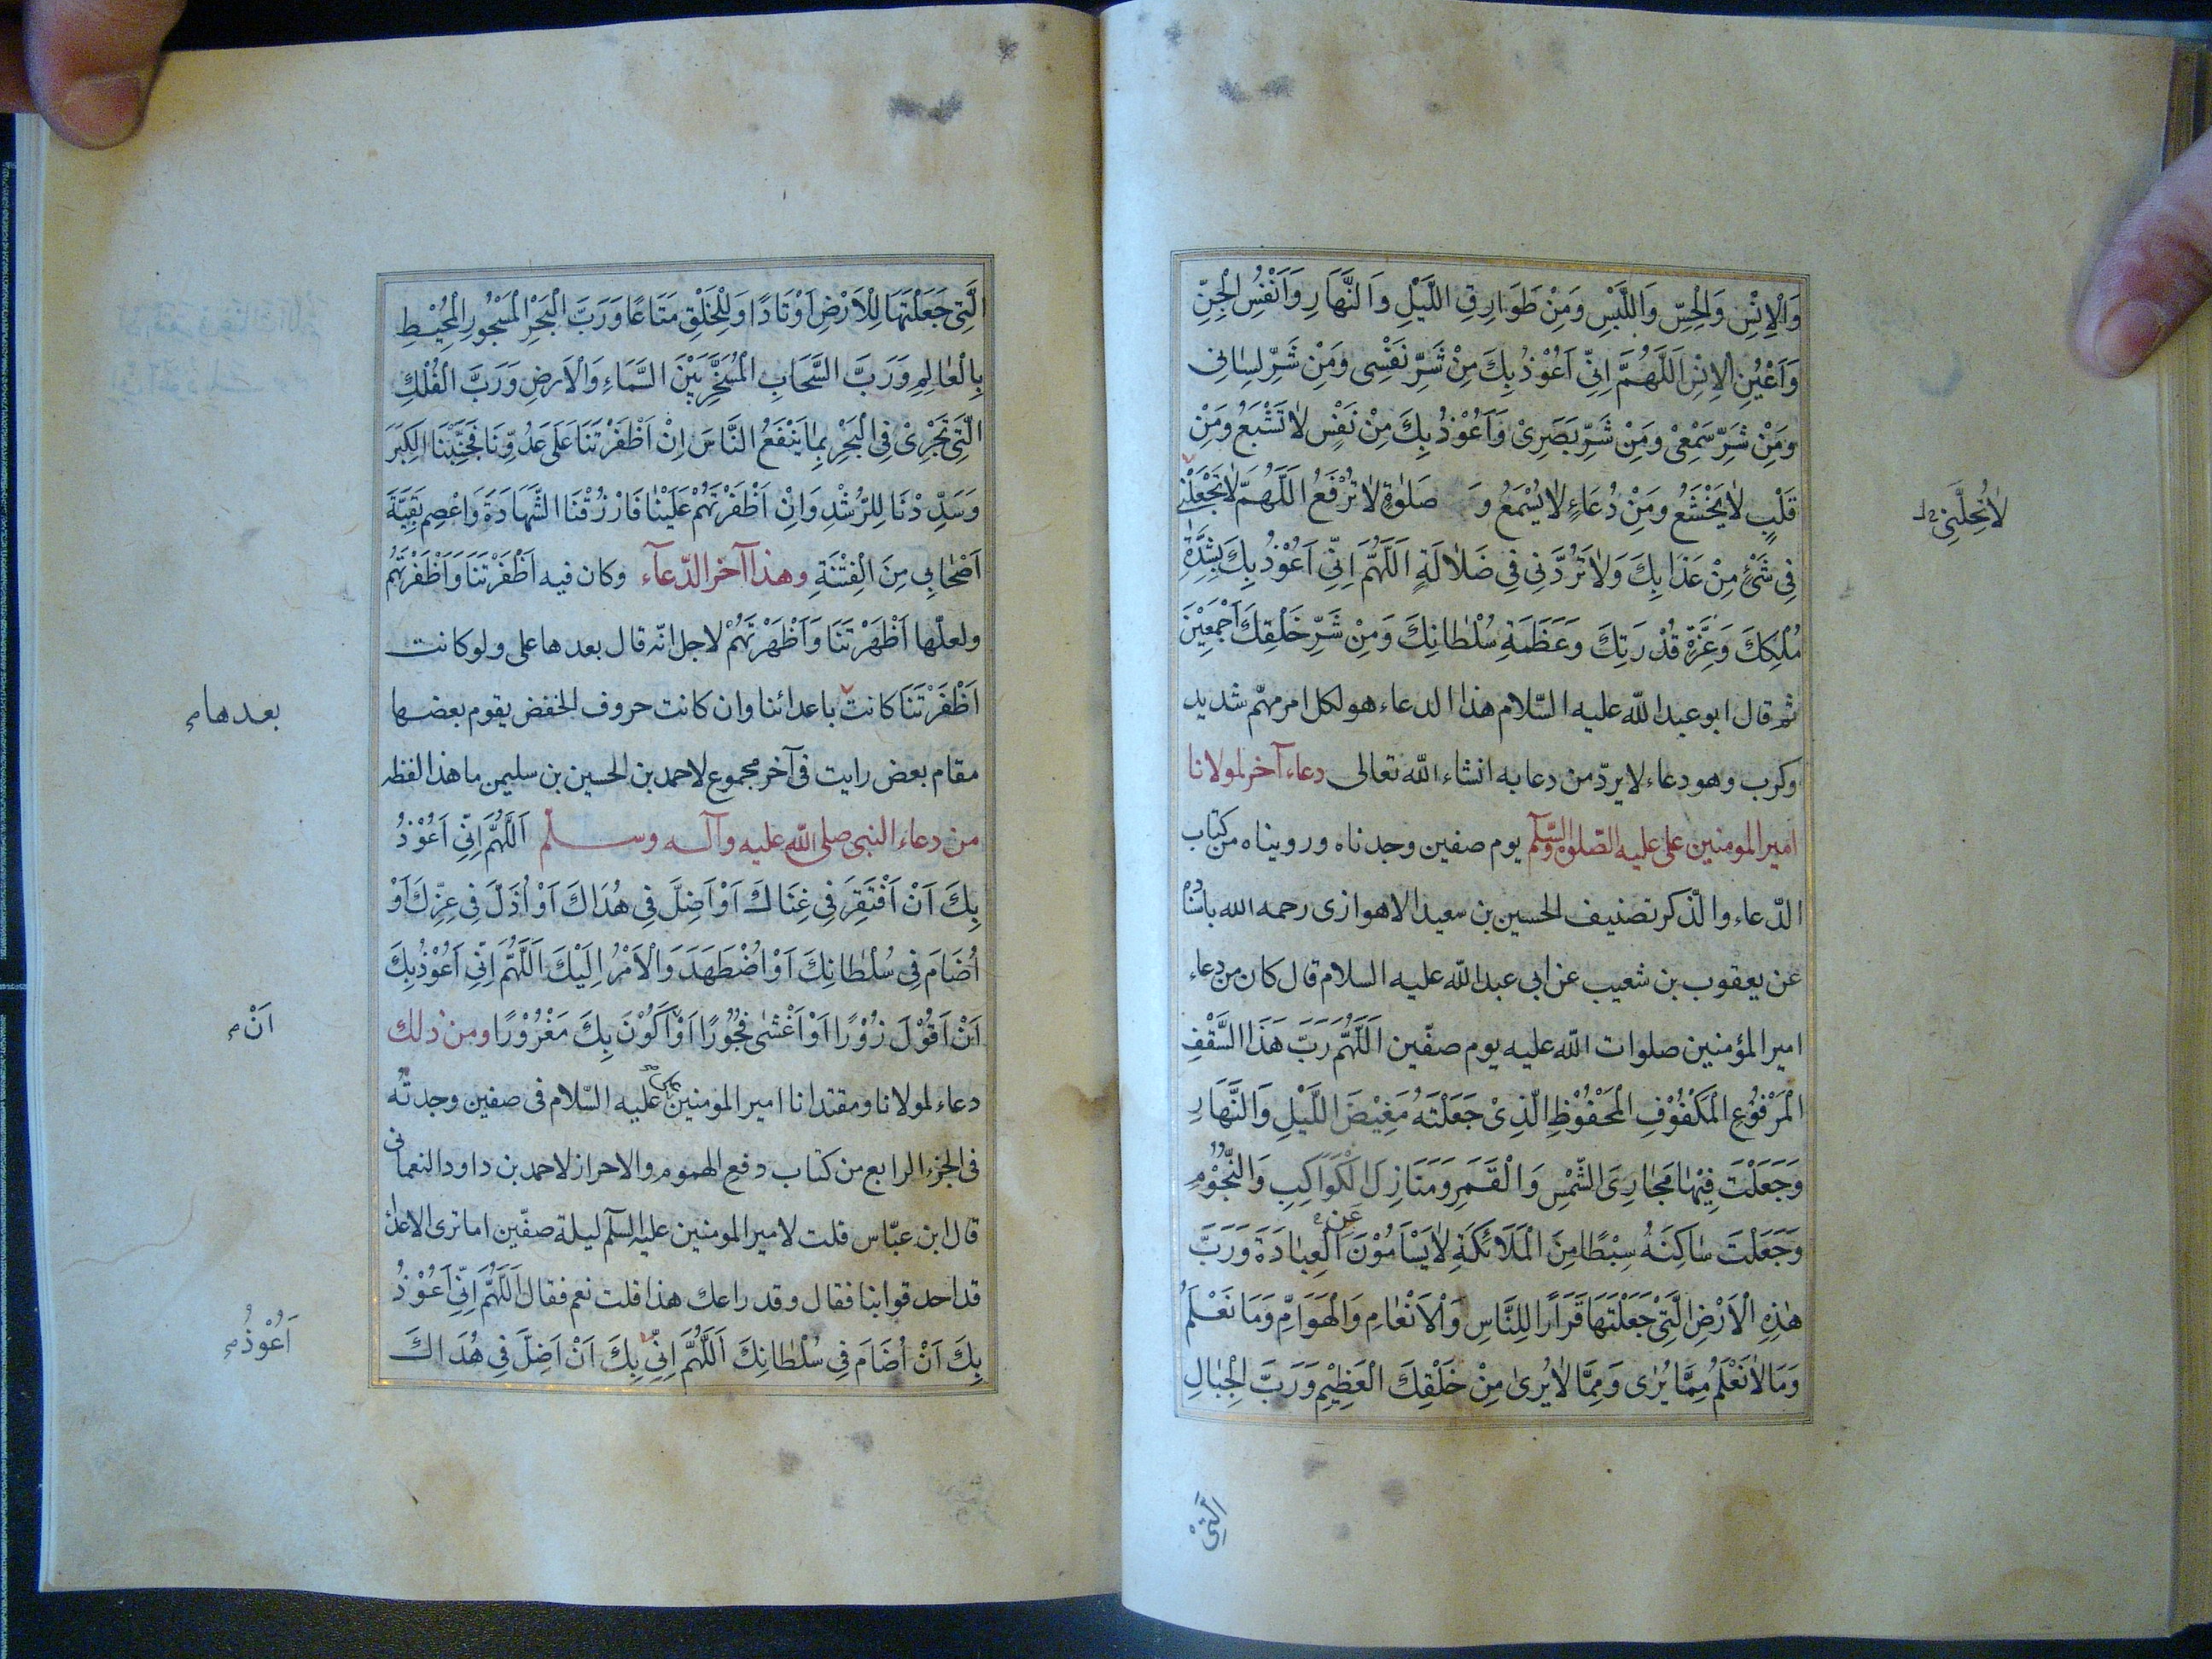 وَالْاِنْسِ وَالْحِسِّ وَاللَّبْسِ وَمِنْ طَوَارِقِ اللَّيْلِ وَالنَّهَارِ وَاَنْفُسِ الْجِنِّ
وَاَعْيُنِ الْاِنْسِ اَللّٰهُمَّ اِنِّى اَعُوْذُ بِكَ مِنْ شَرِّ نَفْسِى وَمِنْ شَرِّ لِسٰانِى
وَمِنْ شَرِّ سَمْعِىْ وَمِنْ شَرِّ بَصَرِىْ وَاَعُوْذُ بِكَ مِنْ نَفْسٍ لٰا تَشْبَعُ وَمِنْ
قَلْبٍ لٰا يَخْشَعُ وَمِنْ دُعَاءٍ لٰا يُسْمَعُ وَ صَلوٰةٍ لٰا تُرْفَعُ اَللّٰهُمَّ لٰا تَجْعَلْنِى
لٰا تُحِلَّنِى خ ل
فِى شَىْءٍ مِنْ عَذَابِكَ وَلٰا تَرُدَّنِى فِى ضَلٰالَةٍ اَللّٰهُمَّ اِنِّى اَعُوْذُ بِكَ بِشِدَّةِ
مُلْكِكَ وَعِزَّةِ قُدْرَتِكَ وَعَظَمَةِ سُلْطٰانِكَ وَمِنْ شَرِّ خَلْقِكَ اَجْمَعِيْنَ
ثم قال ابو عبد الله عليه السّلام هذا الدعاء هو لكل امر مهمّ شديد
وكرب وهو دعاء لا يردّ من دعا به انشاء الله تعالى دعاء آخر لمولانا
امير المومنين على عليه الصّلوة والسّلم يوم صفين وجدناه ورويناه من كتاب
الدّعاء والذّكر تصنيف الحسين بن سعيد الاهوازى رحمه الله باسناده
عن يعقوب بن شعيب عن ابى عبد الله عليه السلام قال كان من دعاء
امير المؤمنين صلوات الله عليه يوم صفّين اَللّٰهُمَّ رَبَّ هَذَا السَّقْفِ
الْمَرْفُوْعِ الْمَكْفُوْفِ الْمَحْفُوْظِ الَّذِىْ جَعَلْتَهُ مَغِيْضَ اللَّيْلِ وَالنَّهَارِ
وَجَعَلْتَ فِيْهٰا مَجٰارِىَ الشَّمْسِ وَالْقَمَرِ وَمَنَازِلَ الْكَوَاكِبِ وَالنُّجُوْمِ
وَجَعَلْتَ سٰاكِنَهُ سِبْطًا مِنَ الْمَلٰائِكَةِ لٰا يَسْاَمُوْنَ عَنِ الْعِبٰادَةِ وَرَبَّ
هٰذِهِ الْاَرْضِ الَّتِىْ جَعَلْتَهَا قَرَارًا لِلنَّاسِ وَالْاَنْعٰامِ وَالْهَوَامِّ وَمَا نَعْلَمُ
وَمَا لٰا نَعْلَمُ مِمَّا يُرٰى وَمِمَّا لٰا يُرىٰ مِنْ خَلْقِكَ الْعَظِيْمِ وَرَبَّ الْجِبٰالِ
اَلَّتِىْ
الَّتِى جَعَلْتَهَا لِلْاَرْضِ اَوْتَادًا وَلِلْخَلْقِ مَتَاعًا وَرَبَّ الْبَحْرِ الْمَسْجُورِ الْمُحِيْطِ
بِالْعٰالَمِ وَرَبَّ السَّحَابِ الْمُسَخَّرِ بَيْنَ السَّمَاءِ وَالْاَرضِ وَرَبَّ الْفُلْكِ
الَّتِى تَجْرِىْ فِى الْبَحْرِ بِمٰا يَنْفَعُ النَّاسَ اِنْ اَظْفَرْتَنَا عَلَى عَدُوِّنَا فَجَنِّبْنَا الْكِبْرَ
وَسَدِّدْنَا لِلرُّشْدِ وَاِنْ اَظْفَرْتَهُمْ عَلَيْنٰا فَارْزُقْنَا الشَّهَادَةَ وَاعْصِمْ بَقِيَّةَ
اَصْحٰابِى مِنَ الْفِتْنَةِ وهذا آخر الدّعآء وكان فيه اَظْفَرْتَنَا وَاَظْفَرْتَهُمْ
ولعلّها اَظْهَرْتَنَا وَاَظْهَرْتَهُمْ لاجل انّه قال بعدها على ولو كانت
اَظْفَرْتَنَا كانت باعدائنا وان كانت حروف الخفض يقوم بعضها
بعدها م
مقام بعض رايت فى آخر مجموع لاحمد بن الحسين بن سليمن ما هذا لفظه
من دعاء النبى صلى الله عليه وآله وسلم اَللّٰهُمَّ اِنِّى اَعُوْذُ
بِكَ اَنْ اَفْتَقِرَ فِى غِنَاكَ اَوْ اَضِلَّ فِى هُدَاكَ اَوْ اُذَلَّ فِى عِزِّكَ اَوْ
اُضَامَ فِى سُلْطٰانِكَ اَوْ اُضْطَهَدَ وَالْاَمْرُ اِلَيْكَ اَللّٰهُمَّ اِنِّى اَعُوْذُ بِكَ
اَنْ اَقُوْلَ زُوْرًا اَوْ اَغْشىٰ فُجُوْرًا اَوْ اَكُوْنَ بِكَ مَغْرُوْرًا ومن ذلك
اَنْ م
دعاء لمولانا ومقتدانا امير المومنين عليه السّلام فى صفين وجدته
فى الجزء الرابع من كتاب دفع الهموم والاحزان لاحمد بن داود النعمانى
قال ابن عبّاس قلت لامير المومنين عليه السلم ليلة صفّين اما ترى الاعداء
قد احدقوا بنا فقال وقد راعك هذا قلت نعم فقال اَللّٰهُمَّ اِنِّى اَعُوْذُ
بِكَ اَنْ اُضَامَ فِى سُلْطٰانِكَ اَللّٰهُمَّ اِنِّى بِكَ اَنْ اَضِلَّ فِى هُدَاكَ
اَعُوْذُ م